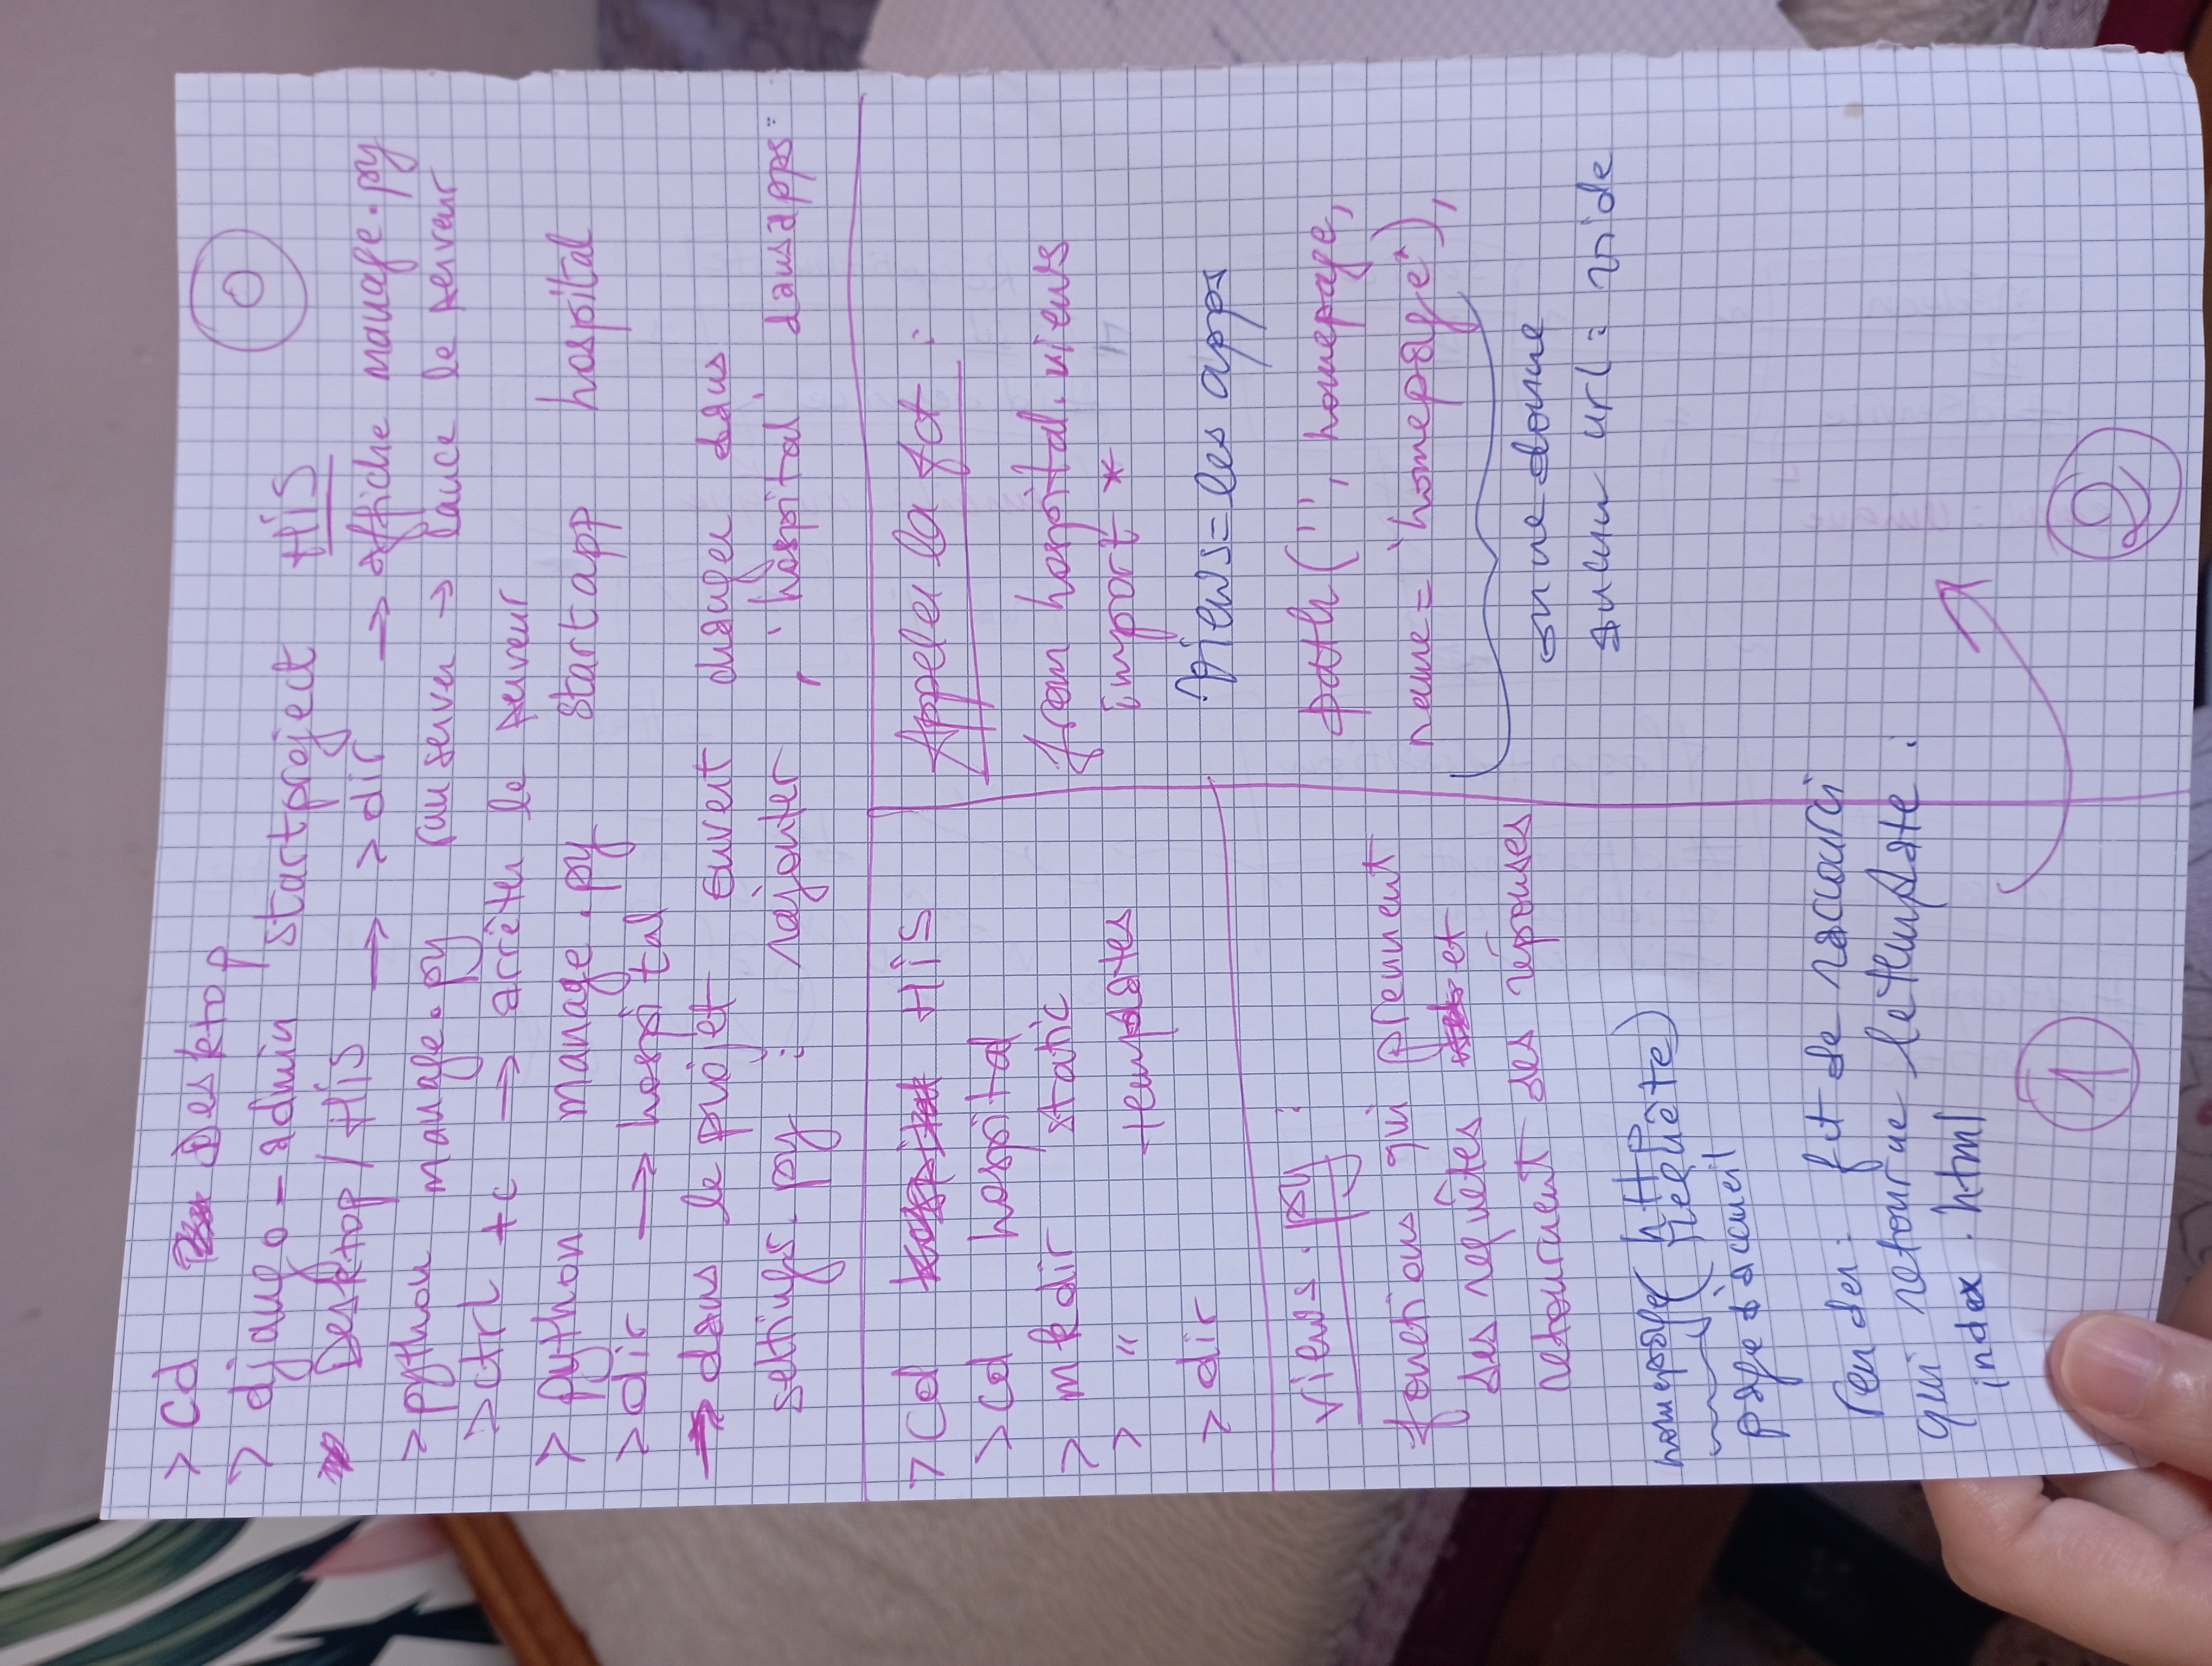 > cd Desktop
0
> django-admin startproject HiS
Desktop/HiS → > dir → affiche manage.py
> python manage.py runserver → lance le serveur
> ctrl +c → arrêter le serveur
> python manage.py startapp hospital
> dir → hospital
→ dans le projet ouvert changer dans
settings.py : rajouter , 'hospital' dans apps
> cd HiS
> cd hospital
> mkdir static
> " templates
> dir
views.py :
fonctions qui prennent
des requêtes et
retournent des réponses
homepage( http
requête)
page d'accueil
render : fct de raccourci
qui retourne le template :
index.html
1
Appeler la fct :
from hospital.views
import *
Views = les apps
path('', homepage,
name = 'homepage'),
on ne donne
aucun url : vide
2